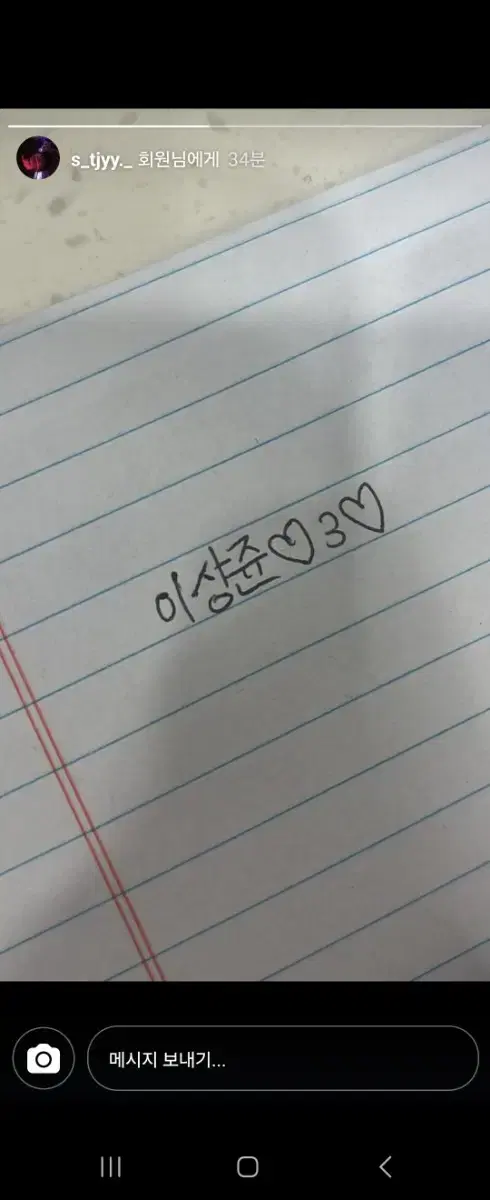 s_tjyy._ 회원님에게 34분
이상쥰♡3♡
메시지 보내기...